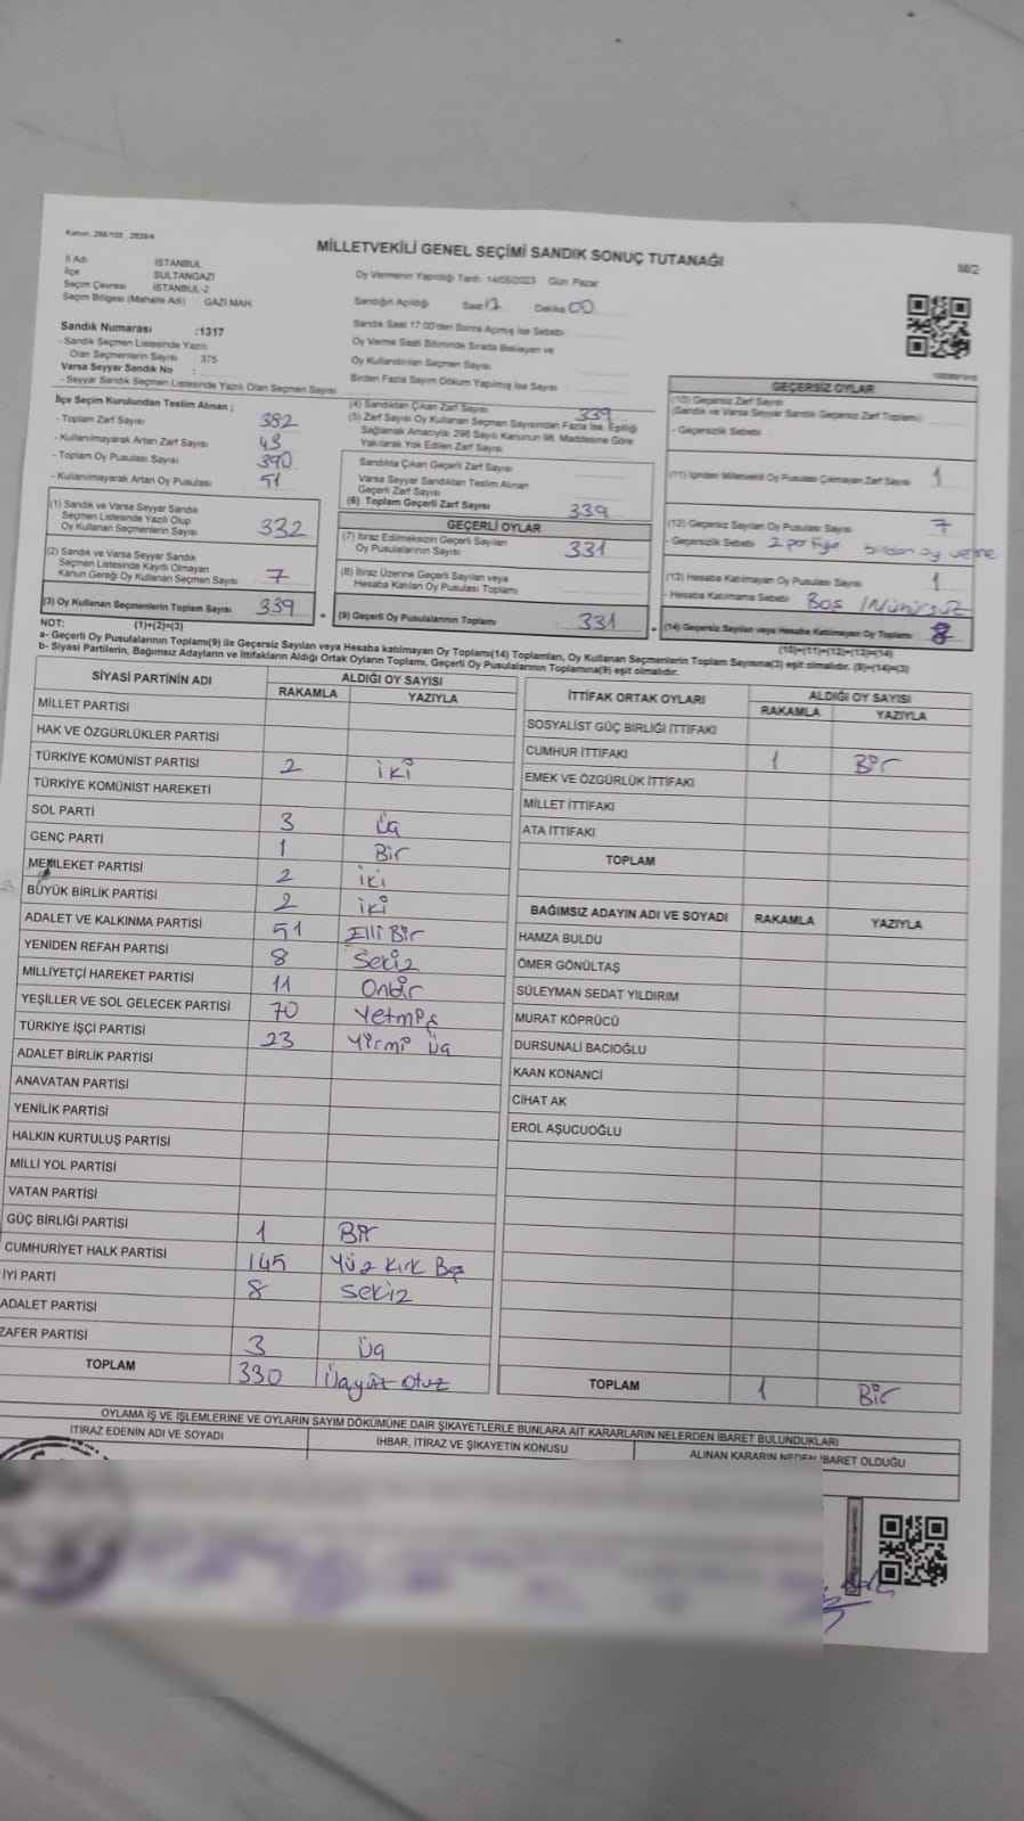 MİLLETVEKİLİ GENEL SEÇİMİ SANDIK SONUÇ TUTANAĞI
İl Adı İSTANBUL
İlçe SULTANGAZİ
Seçim Çevresi İSTANBUL-2
Seçim Bölgesi (Mahalle Adı) GAZİ MAH.
Oy Vermenin Yapıldığı Tarih: 14/05/2023 Gün Pazar
Sandığın Açıldığı Saat 17 Dakika 00
Sandık Saat 17:00'den Sonra Açılmış İse Sebebi
Oy Verme Saati Bitiminde Sırada Bekleyen ve
Oy Kullandırılan Seçmen Sayısı
Birden Fazla Sayım Döküm Yapılmış İse Sayısı
Sandık Numarası :1317
- Sandık Seçmen Listesinde Yazılı
Olan Seçmenlerin Sayısı 375
Varsa Seyyar Sandık No :
- Seyyar Sandık Seçmen Listesinde Yazılı Olan Seçmen Sayısı
İlçe Seçim Kurulundan Teslim Alınan ;
- Toplam Zarf Sayısı 382
- Kullanılmayarak Artan Zarf Sayısı 43
- Toplam Oy Pusulası Sayısı 390
- Kullanılmayarak Artan Oy Pusulası 51
(1) Sandık ve Varsa Seyyar Sandık
Seçmen Listesinde Yazılı Olup
Oy Kullanan Seçmenlerin Sayısı 332
(2) Sandık ve Varsa Seyyar Sandık
Seçmen Listesinde Kayıtlı Olmayan
Kanun Gereği Oy Kullanan Seçmen Sayısı 7
(3) Oy Kullanan Seçmenlerin Toplam Sayısı 339
(1)+(2)=(3)
(4) Sandıktan Çıkan Zarf Sayısı 339
(5) Zarf Sayısı Oy Kullanan Seçmen Sayısından Fazla İse, Eşitliği
Sağlamak Amacıyla 298 Sayılı Kanunun 98. Maddesine Göre
Yakılarak Yok Edilen Zarf Sayısı
Sandıkta Çıkan Geçerli Zarf Sayısı
Varsa Seyyar Sandıktan Teslim Alınan
Geçerli Zarf Sayısı
(6) Toplam Geçerli Zarf Sayısı 339
GEÇERLİ OYLAR
(7) İtiraz Edilmeksizin Geçerli Sayılan
Oy Pusulalarının Sayısı 331
(8) İtiraz Üzerine Geçerli Sayılan veya
Hesaba Katılan Oy Pusulası Toplamı
(9) Geçerli Oy Pusulalarının Toplamı 331
GEÇERSİZ OYLAR
(10) Geçersiz Zarf Sayısı
(Sandık ve Varsa Seyyar Sandık Geçersiz Zarf Toplamı)
- Geçersizlik Sebebi
(11) İçinden Milletvekili Oy Pusulası Çıkmayan Zarf Sayısı 1
(12) Geçersiz Sayılan Oy Pusulası Sayısı 7
- Geçersizlik Sebebi
(13) Hesaba Katılmayan Oy Pusulası Sayısı 1
- Hesaba Katılmama Sebebi Boş / Mühürsüz
(14) Geçersiz Sayılan veya Hesaba Katılmayan Oy Toplamı 8
(10)+(11)+(12)+(13)=(14)
NOT:
a- Geçerli Oy Pusulalarının Toplamı(9) ile Geçersiz Sayılan veya Hesaba katılmayan Oy Toplamı(14) Toplamları, Oy Kullanan Seçmenlerin Toplam Sayısına(3) eşit olmalıdır. (9)+(14)=(3)
b- Siyasi Partilerin, Bağımsız Adayların ve İttifakların Aldığı Ortak Oyların Toplamı, Geçerli Oy Pusulalarının Toplamına(9) eşit olmalıdır.
SİYASİ PARTİNİN ADI ALDIĞI OY SAYISI
RAKAMLA YAZIYLA
MİLLET PARTİSİ
HAK VE ÖZGÜRLÜKLER PARTİSİ
TÜRKİYE KOMÜNİST PARTİSİ 2 iki
TÜRKİYE KOMÜNİST HAREKETİ
SOL PARTİ 3 üç
GENÇ PARTİ 1 Bir
MEMLEKET PARTİSİ 2 iki
BÜYÜK BİRLİK PARTİSİ 2 iki
ADALET VE KALKINMA PARTİSİ 51 Elli Bir
YENİDEN REFAH PARTİSİ 8 Sekiz
MİLLİYETÇİ HAREKET PARTİSİ 11 Onbir
YEŞİLLER VE SOL GELECEK PARTİSİ 70 Yetmiş
TÜRKİYE İŞÇİ PARTİSİ 23 Yirmi üç
ADALET BİRLİK PARTİSİ
ANAVATAN PARTİSİ
YENİLİK PARTİSİ
HALKIN KURTULUŞ PARTİSİ
MİLLİ YOL PARTİSİ
VATAN PARTİSİ
GÜÇ BİRLİĞİ PARTİSİ 1 Bir
CUMHURİYET HALK PARTİSİ 145 Yüz Kırk Beş
İYİ PARTİ 8 Sekiz
ADALET PARTİSİ
ZAFER PARTİSİ 3 üç
TOPLAM 330 üçyüz otuz
İTTİFAK ORTAK OYLARI ALDIĞI OY SAYISI
RAKAMLA YAZIYLA
SOSYALİST GÜÇ BİRLİĞİ İTTİFAKI
CUMHUR İTTİFAKI 1 Bir
EMEK VE ÖZGÜRLÜK İTTİFAKI
MİLLET İTTİFAKI
ATA İTTİFAKI
TOPLAM
BAĞIMSIZ ADAYIN ADI VE SOYADI RAKAMLA YAZIYLA
HAMZA BULDU
ÖMER GÖNÜLTAŞ
SÜLEYMAN SEDAT YILDIRIM
MURAT KÖPRÜCÜ
DURSUNALİ BACIOĞLU
KAAN KONANCİ
CİHAT AK
EROL AŞUCUOĞLU
TOPLAM 1 Bir
OYLAMA İŞ VE İŞLEMLERİNE VE OYLARIN SAYIM DÖKÜMÜNE DAİR ŞİKAYETLERLE BUNLARA AİT KARARLARIN NELERDEN İBARET BULUNDUKLARI
İTİRAZ EDENİN ADI VE SOYADI İHBAR, İTİRAZ VE ŞİKAYETİN KONUSU ALINAN KARARIN NEDEN İBARET OLDUĞU